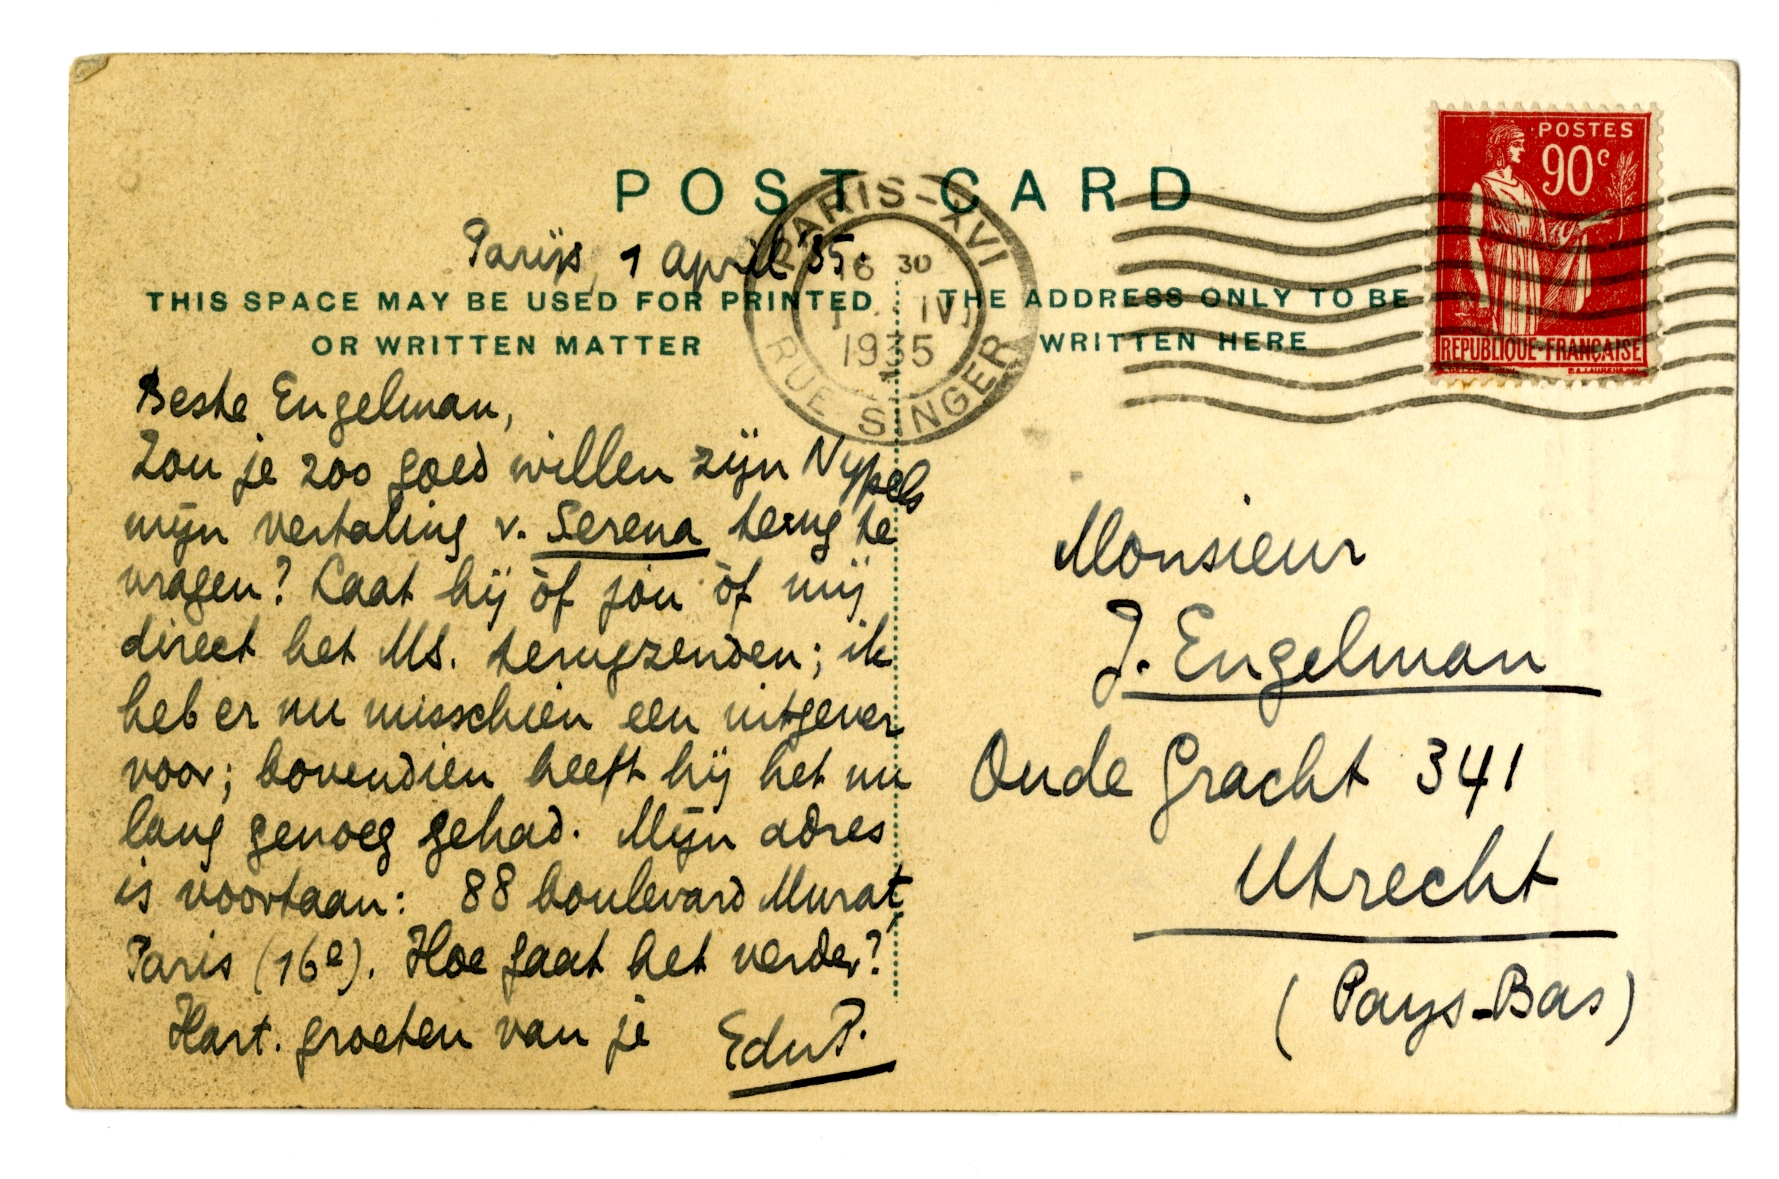 POST CARD
Parijs, 1 april '35.
THIS SPACE MAY BE USED FOR PRINTED
OR WRITTEN MATTER
THE ADDRESS ONLY TO BE
WRITTEN HERE
PARIS-XVI
16 30
1 IV
1935
RUE SINGER
POSTES
90c
REPUBLIQUE-FRANÇAISE
Beste Engelman,
Zou je zoo goed willen zijn Nypels
mijn vertaling v. Serena terug te
vragen? Laat hij òf jou òf mij
direct het MS. terugzenden; ik
heb er nu misschien een uitgever
voor; bovendien heeft hij het nu
lang genoeg gehad. Mijn adres
is voortaan: 88 boulevard Murat,
Paris (16e). Hoe gaat het verder?
Hart. groeten van je EduP.
Monsieur
J. Engelman
Oude Gracht 341
Utrecht
(Pays-Bas)